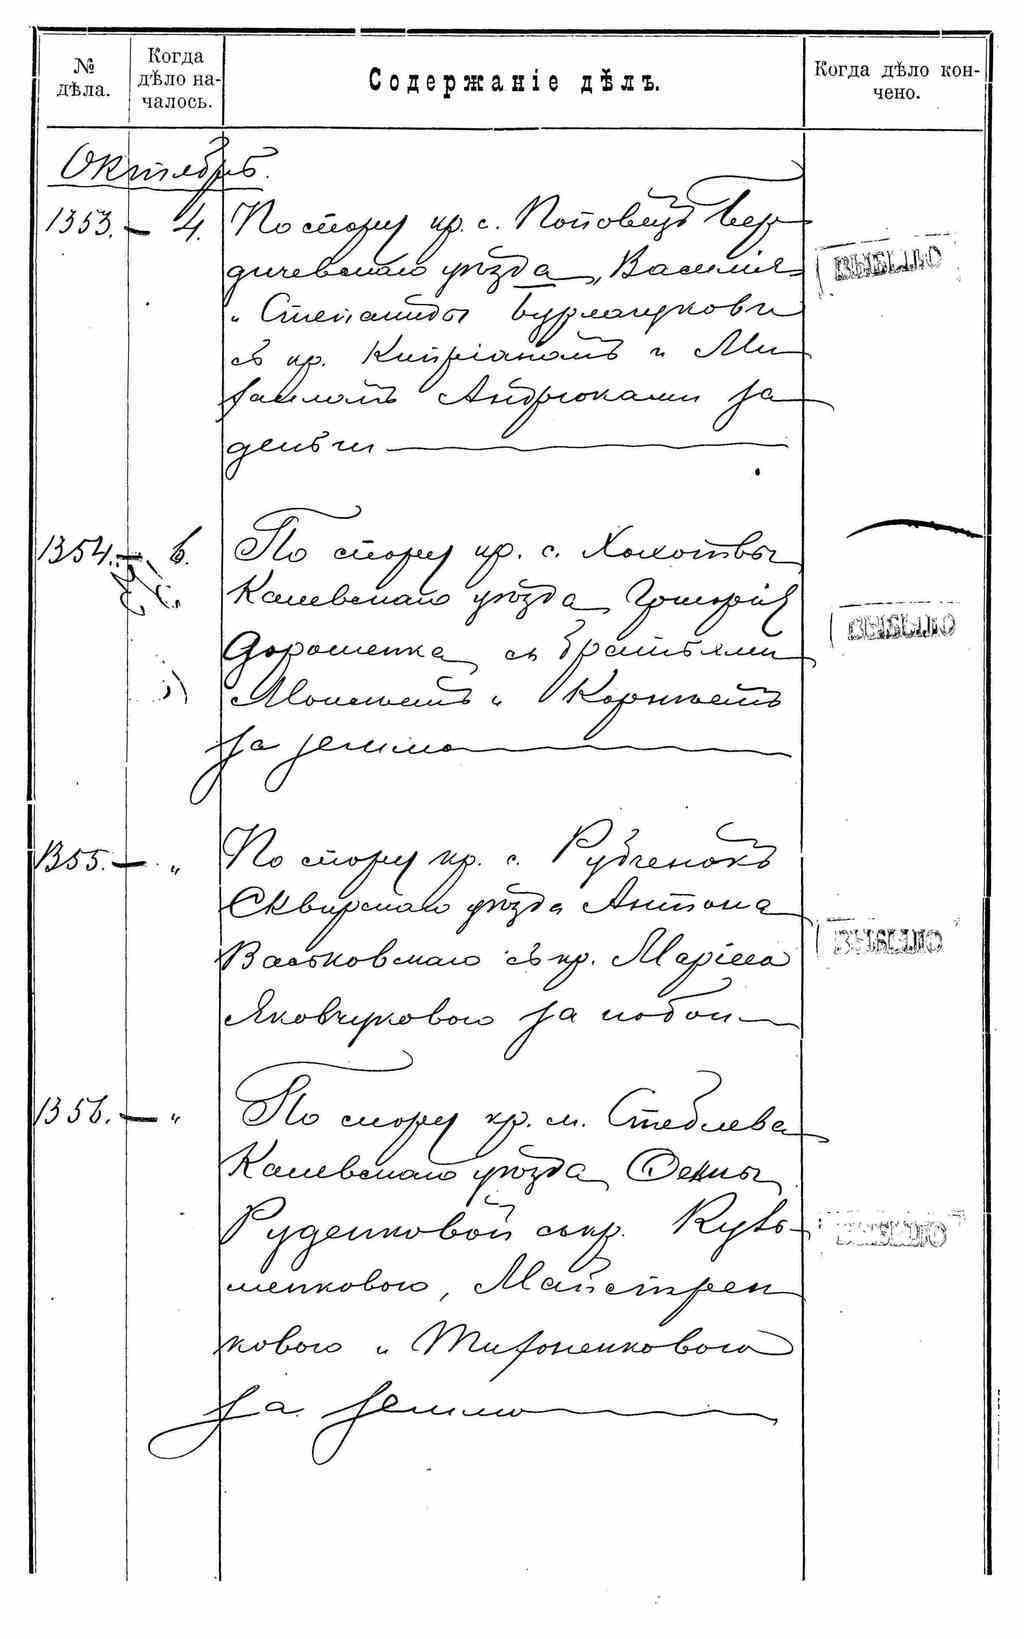 № дѣла.
Когда дѣло на-
чалось.
Содержаніе дѣлъ.
Когда дѣло кон-
чено.
Октябрь.
1353. — 4. По спору кр. с. Поповецъ Бер-
дичевскаго уѣзда, Василія
и Степаниды Бурлачуковы
съ кр. Кипріаномъ и Ми-
хаиломъ Андрюками за
деньги
ВЫБЫЛО
1354. — 6. По спору кр. с. Хохотвы
Каневскаго уѣзда Григорія
Дорошенка съ братьями
Моисеемъ и Корнѣемъ
за землю
1355. — " По спору кр. с. Рубченокъ
Сквирскаго уѣзда Антона
Васьковскаго съ кр. Маріею
Яковчуковою за побои
1356. — " По спору кр. м. Стеблева
Каневскаго уѣзда
Руденковой съ кр. Кузь-
менковою, Майстрен
ковою и Тихоненковою
за землю